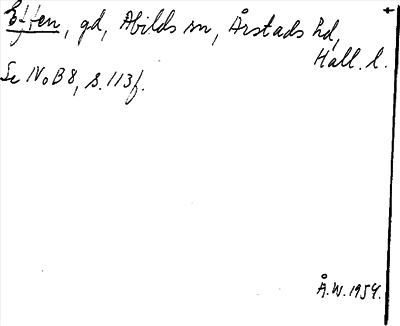 Eften, gd, Abilds sn, Årstads hd,
Hall. l.
Se NoB 8, s. 113 f.
Å.W. 1954.